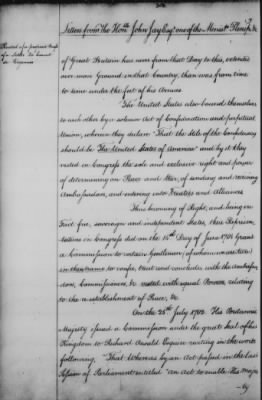 Letters from the Honble. John Jay Esqr. one of the Minist. Plenip. &
of Great Britain has now from that Day to this, extended
over more Ground in that Country, than was from time
to time under the feet of his Armies
The United States also bound themselves
to each other by a solemn Act of Confederation and perpetual
Union, wherein they declare "That the stile of the Confederacy
should be The United States of America" and by it they
vested in Congress the sole and exclusive right and power
of determining on Peace and War, of sending and receiving
Ambassadors, and entering into Treaties and Alliances
Thus becoming of Right, and being in
Fact free, sovereign and independent States, their Represen-
tatives in Congress did on the 15th Day of June 1781 grant
a Commission to certain Gentlemen, (of whom I
in their name to confer, treat and conclude with the Ambassa-
dors, Commissioners, &c vested with equal Powers relating
to the re establishment of Peace, &c
On the 25th July 1782. His Britannic
Majesty issued a Commission under the great Seal of his
Kingdom to Richard Oswald Esquire reciting in the words
following, "That Whereas by an Act passed in the last
Session of Parliament entitled "An Act to enable His Majes-
ty